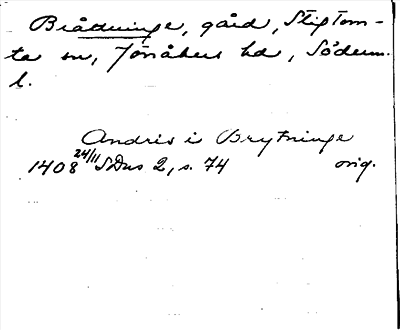 Bråttninge, gård, Stigtom-
ta sn, Jönåkers hd, Söderm.
l.
Andris i Brytninge
1408 24/11 SDns 2, s. 74 orig.